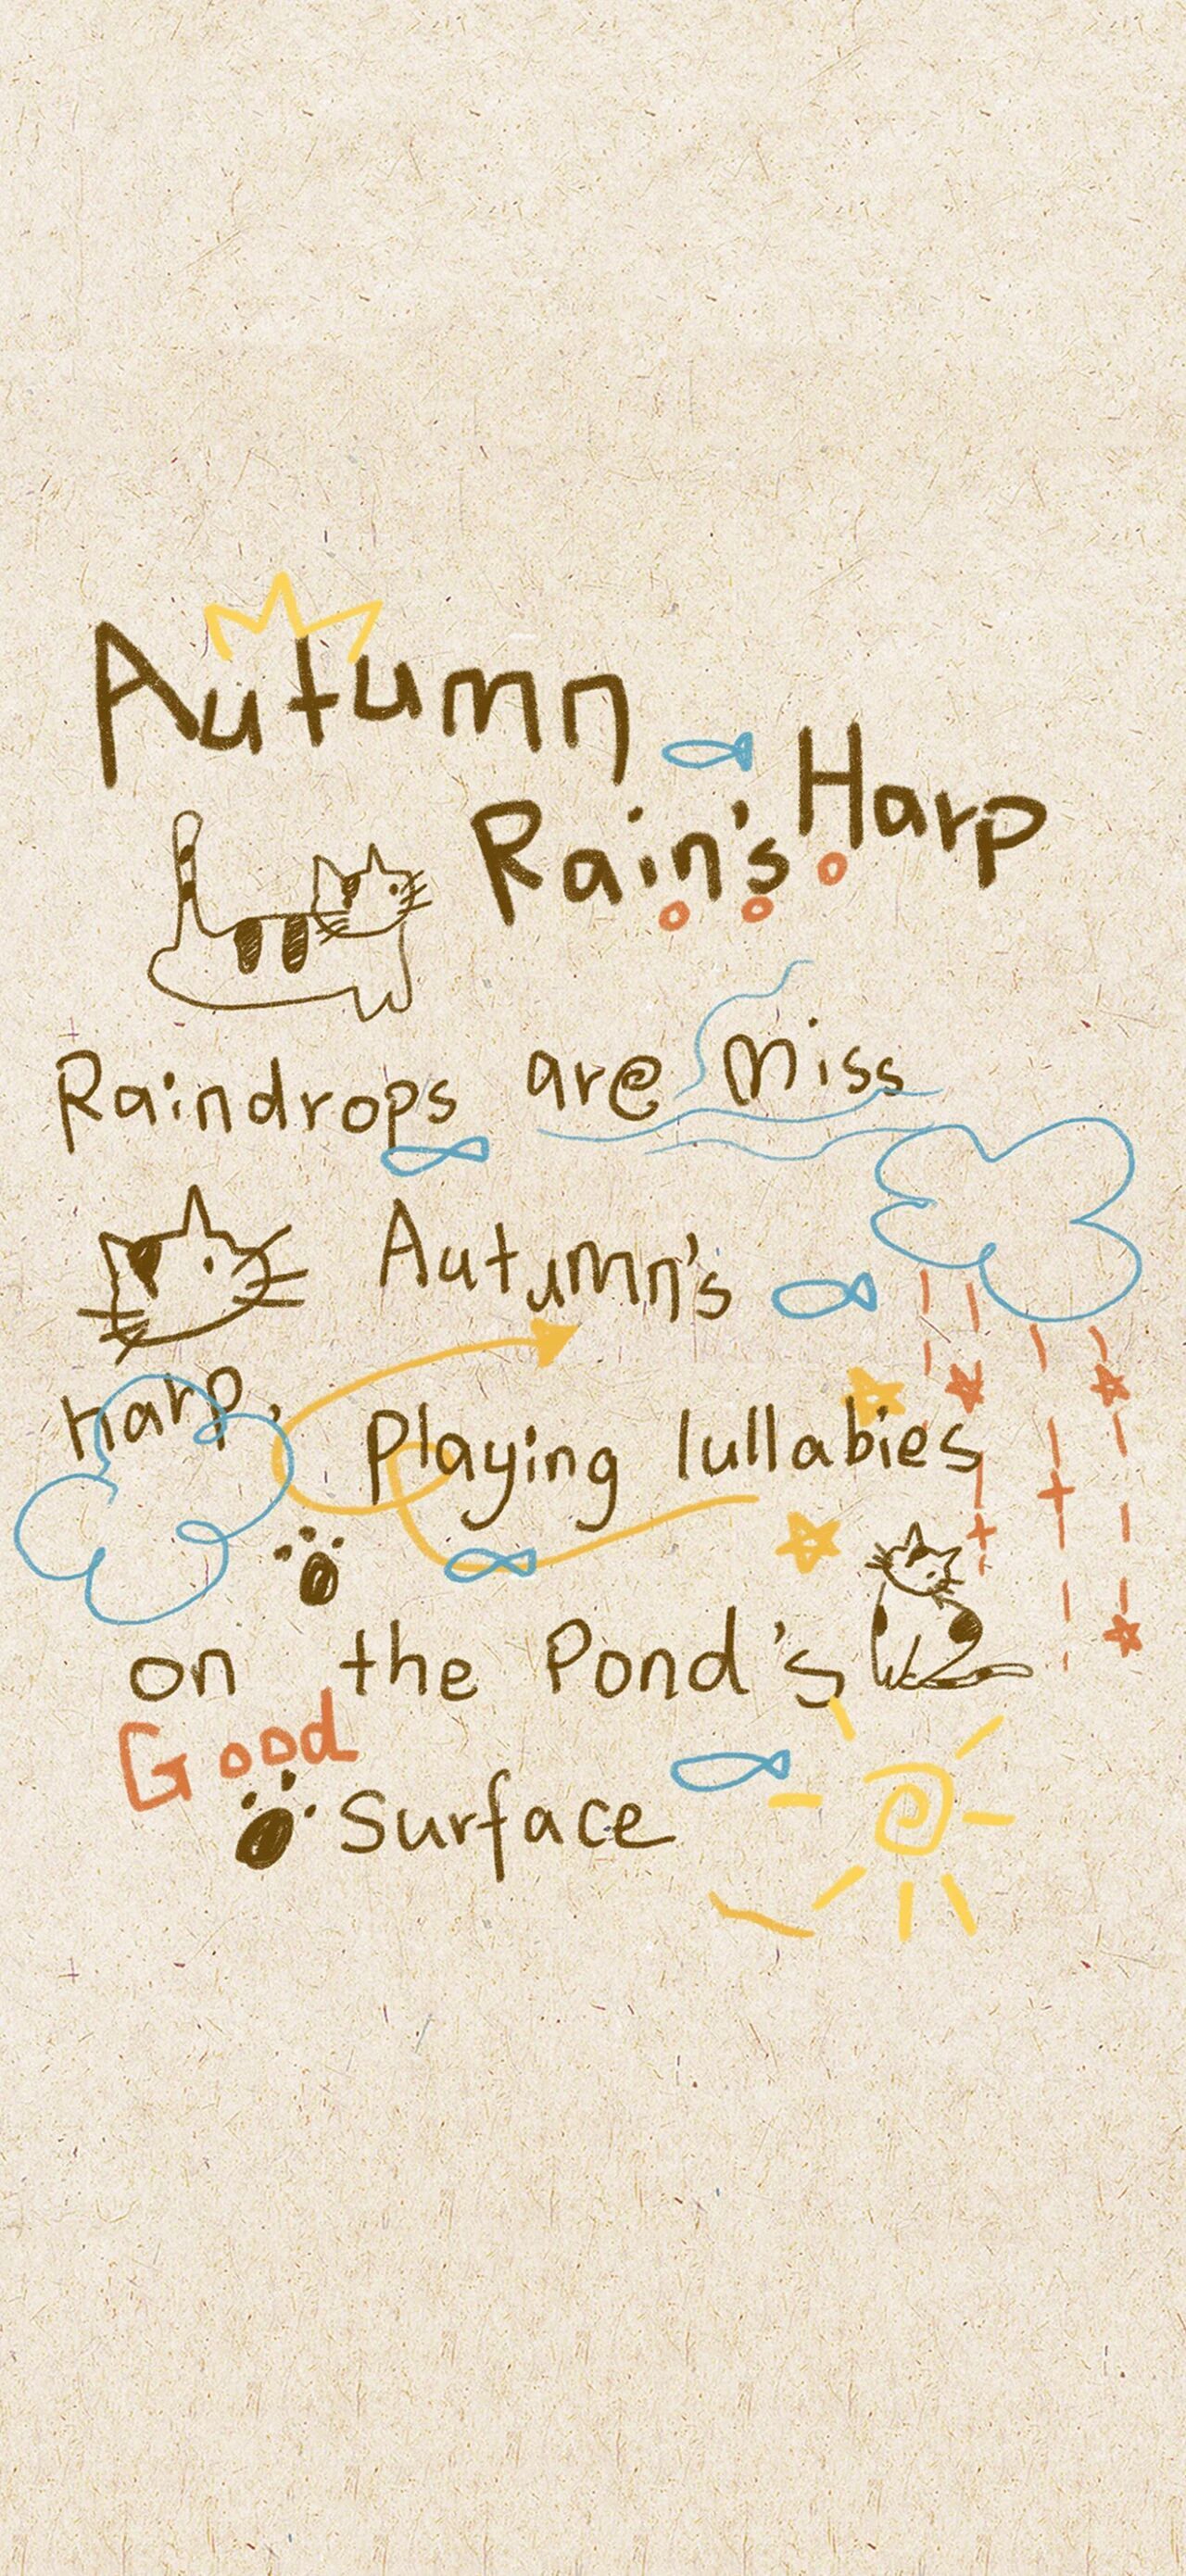 Autumn
Rain's Harp
Raindrops are Miss
Autumn's
harp,
Playing lullabies
on the Pond's
Good
Surface